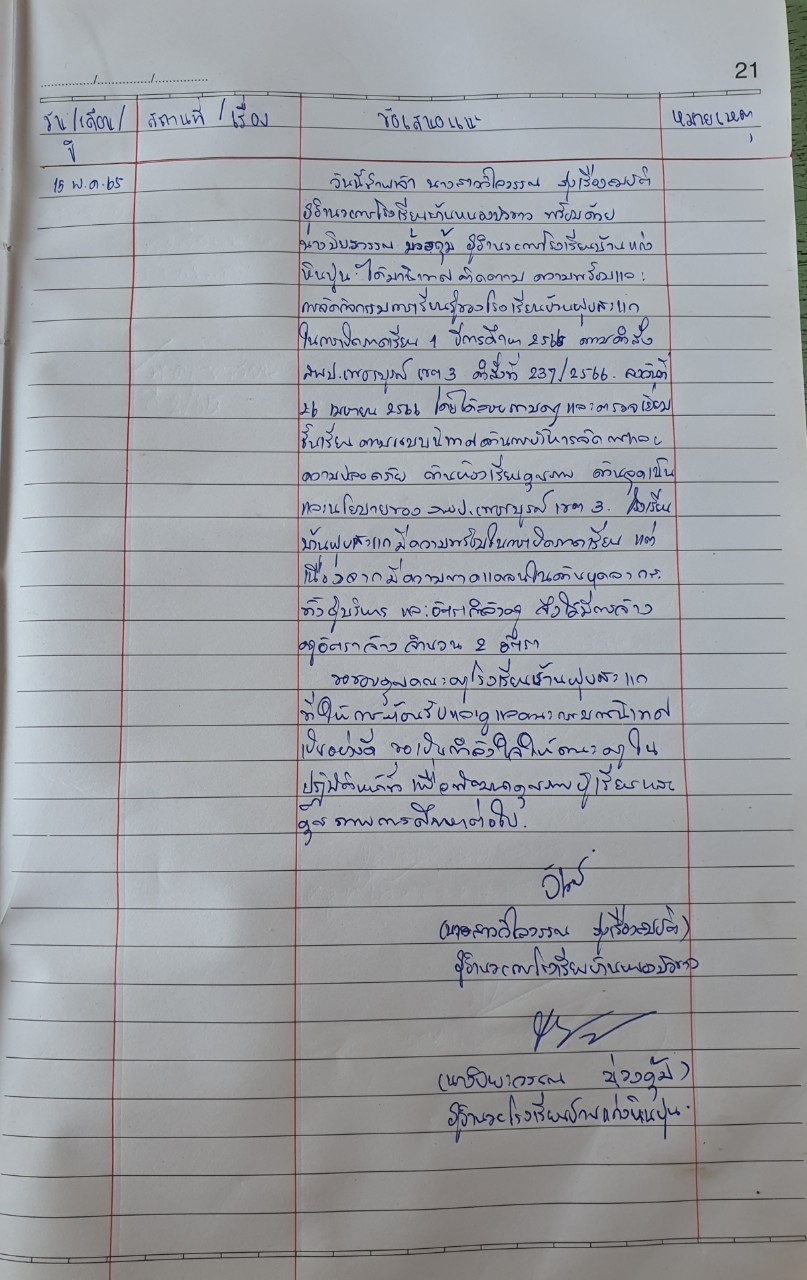 21
วัน/เดือน/ สถานที่ / เรื่อง ข้อเสนอแนะ หมายเหตุ
ปี
15 พ.ค. 65 วันนี้ข้าพเจ้า นางสาววิไลวรรณ รุ่งเรืองสมบัติ
ผู้อำนวยการโรงเรียนบ้านหนองบัวขาว พร้อมด้วย
ผู้อำนวยการโรงเรียนบ้านแก่ง
หินปูน ได้มานิเทศ ติดตาม ความพร้อมและ
การจัดกิจกรรมการเรียนรู้ของโรงเรียนบ้านฝุบสาแก
ในการเปิดภาคเรียน 1 ปีการศึกษา 2566 ตามคำสั่ง
สพป.เพชรบูรณ์ เขต 3 คำสั่งที่ 237/2566. ลงวันที่
26 เมษายน 2566 โดยได้สอบถามครู และตรวจเยี่ยม
ชั้นเรียน ตามแบบนิเทศด้านการบริหารจัดการและ
ความปลอดภัย ด้านห้องเรียนคุณภาพ ด้านจุดเน้น
และนโยบายของ สพป.เพชรบูรณ์ เขต 3. โรงเรียน
บ้านฝุบสาแก มีความพร้อมในการเปิดภาคเรียน แต่
เนื่องจากมีความขาดแคลนในด้านบุคลากร
ทั้งผู้บริหาร และอัตรากำลังครู ซึ่งได้มีการจ้าง
ครูอัตราจ้าง จำนวน 2 อัตรา
ขอขอบคุณคณะครูโรงเรียนบ้านฝุบสาแก
ที่ให้การต้อนรับและดูแลคณะกรรมการนิเทศ
เป็นอย่างดี ขอเป็นกำลังใจให้คณะครูใน
ปฏิบัติหน้าที่ เพื่อพัฒนาคุณภาพผู้เรียนและ
คุณภาพการศึกษาต่อไป.
(นางสาววิไลวรรณ รุ่งเรืองสมบัติ)
ผู้อำนวยการโรงเรียนบ้านหนองบัวขาว
ผู้อำนวยโรงเรียนบ้านแก่งหินปูน.